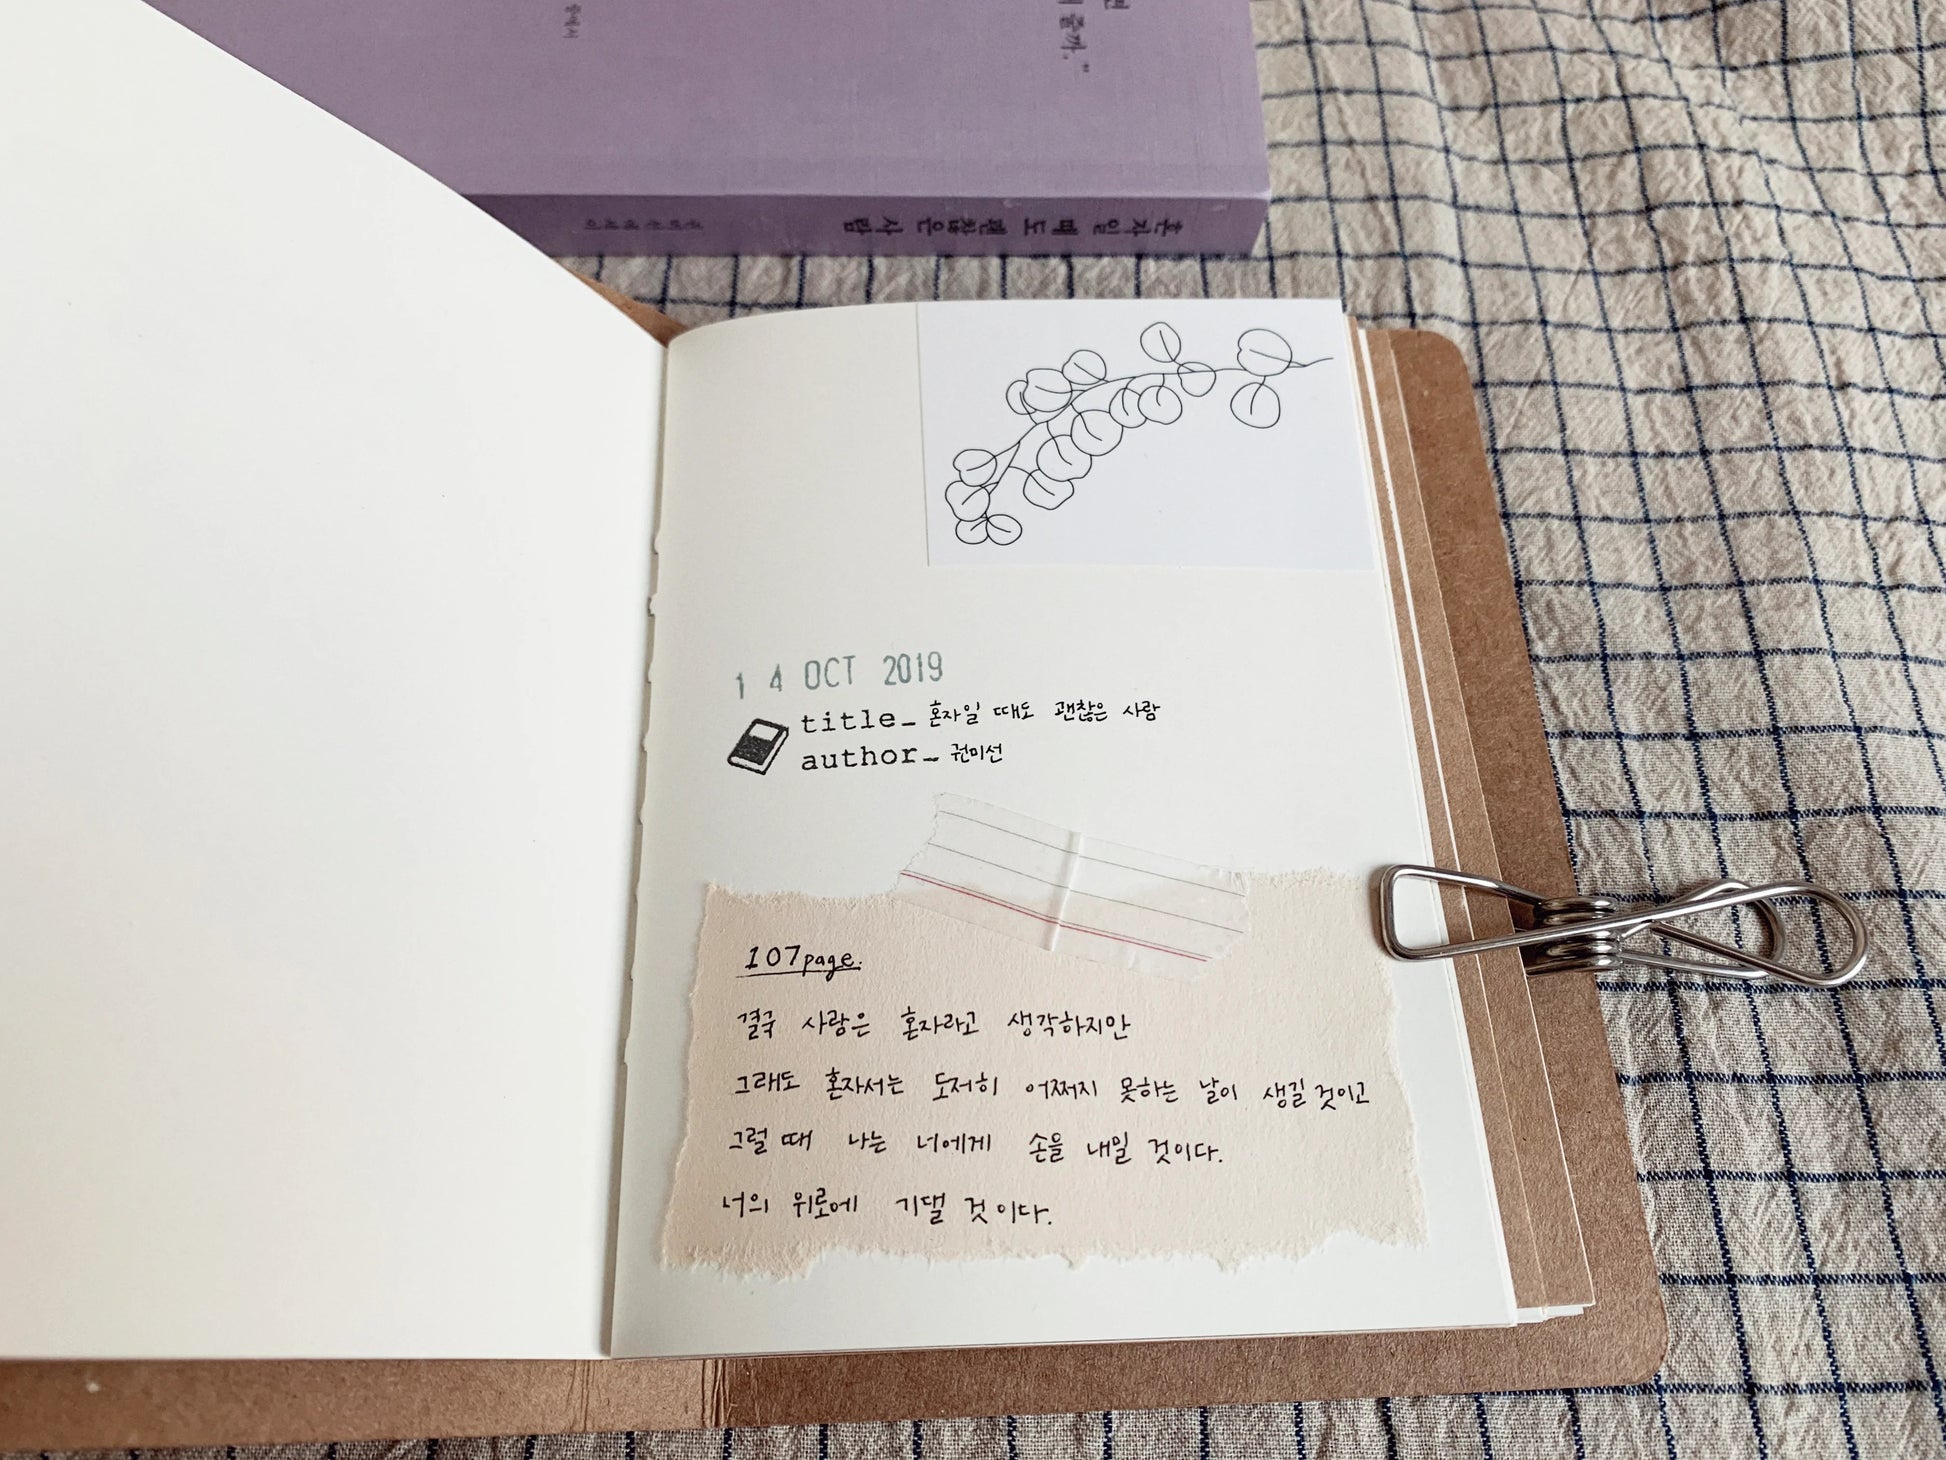 줄까."
혼자일 때도 괜찮은 사람
권미선 에세이
14 OCT 2019
title_ 혼자일 때도 괜찮은 사람
author_ 권미선
107page.
결국 사람은 혼자라고 생각하지만
그래도 혼자서는 도저히 어쩌지 못하는 날이 생길 것이고
그럴 때 나는 너에게 손을 내밀 것이다.
너의 위로에 기댈 것이다.